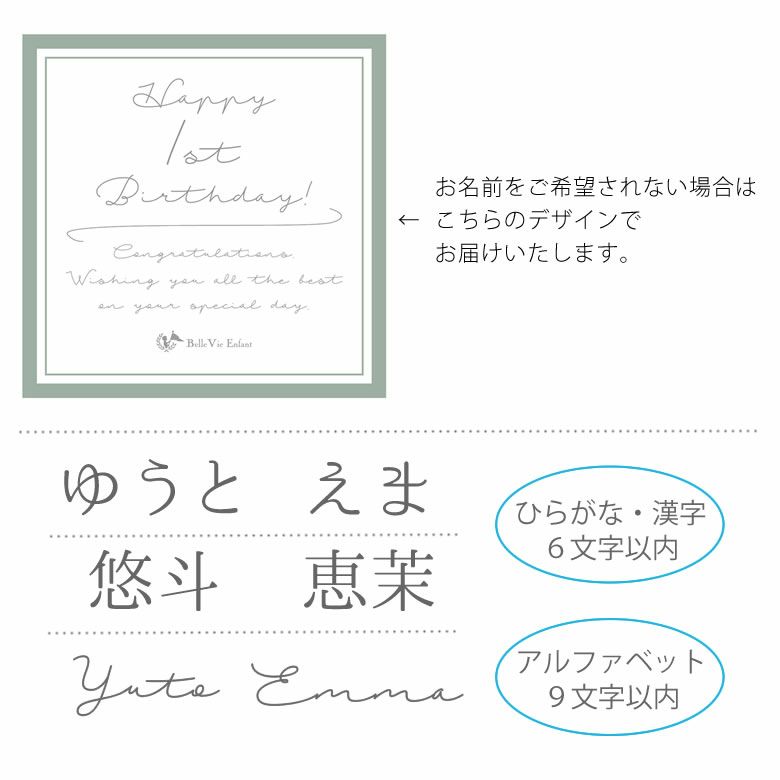 Happy
1st
Birthday!
Congratulations.
Wishing you all the best
on your special day.
BelleVie Enfant
← お名前をご希望されない場合は
こちらのデザインで
お届けいたします。
ゆうと えま
ひらがな・漢字
６文字以内
悠斗 恵茉
Yuto Emma
アルファベット
９文字以内